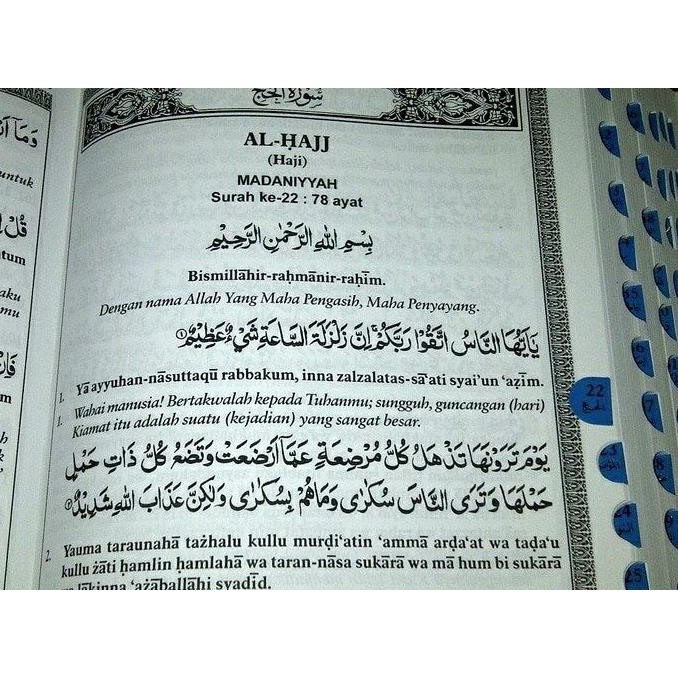 سورة الحج
AL-ḤAJJ
(Haji)
MADANIYYAH
Surah ke-22 : 78 ayat
بِسْمِ اللهِ الرَّحْمٰنِ الرَّحِيْمِ
Bismillāhir-raḥmānir-raḥīm.
Dengan nama Allah Yang Maha Pengasih, Maha Penyayang.
يٰٓاَيُّهَا النَّاسُ اتَّقُوْا رَبَّكُمْ ۚ اِنَّ زَلْزَلَةَ السَّاعَةِ شَيْءٌ عَظِيْمٌ ١
1. Yā ayyuhan-nāsuttaqū rabbakum, inna zalzalatas-sā‘ati syai'un ‘aẓīm.
1. Wahai manusia! Bertakwalah kepada Tuhanmu; sungguh, guncangan (hari)
Kiamat itu adalah suatu (kejadian) yang sangat besar.
يَوْمَ تَرَوْنَهَا تَذْهَلُ كُلُّ مُرْضِعَةٍ عَمَّآ اَرْضَعَتْ وَتَضَعُ كُلُّ ذَاتِ حَمْلٍ
حَمْلَهَا وَتَرَى النَّاسَ سُكٰرٰى وَمَا هُمْ بِسُكٰرٰى وَلٰكِنَّ عَذَابَ اللهِ شَدِيْدٌ ٢
2. Yauma taraunahā tażhalu kullu murḍi‘atin ‘ammā arḍa‘at wa taḍa‘u
kullu żāti ḥamlin ḥamlahā wa taran-nāsa sukārā wa mā hum bi sukārā
lākinna ‘ażāballāhi syadīd.
untuk
قُلْ
tum
aku
mu
22
الحج
24
25